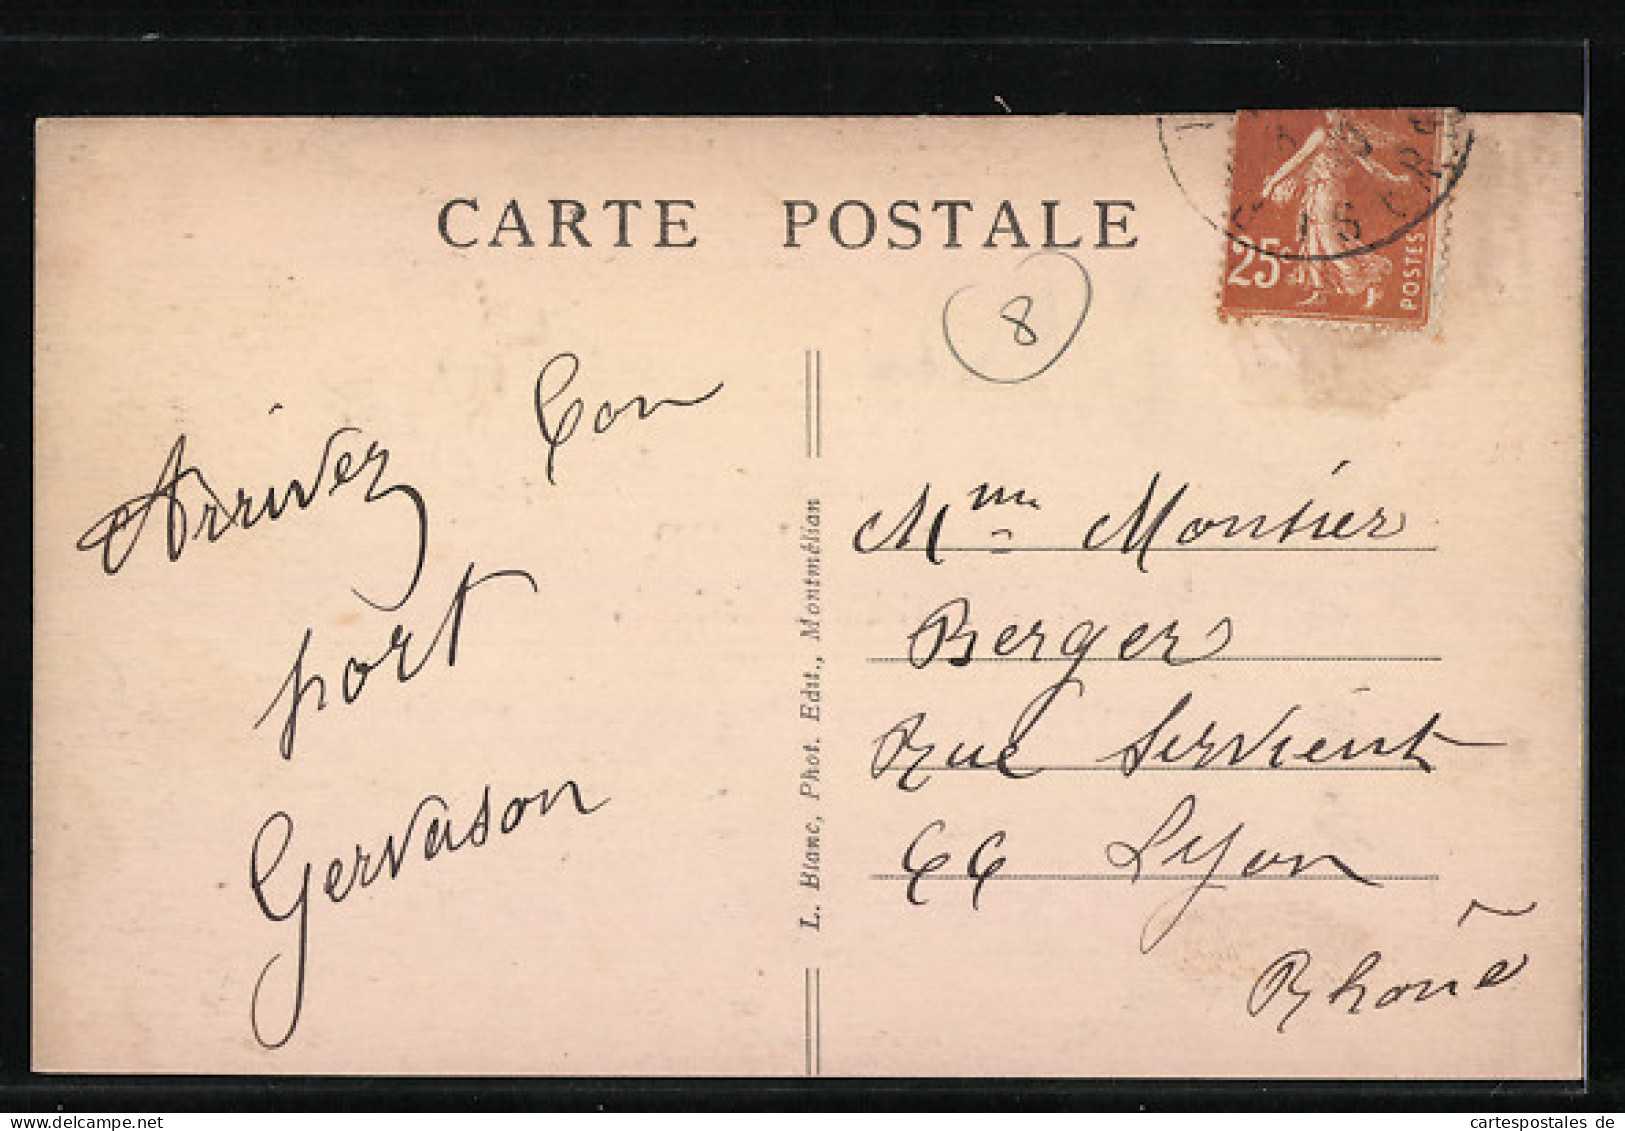 CARTE POSTALE
25c
POSTES
8
Arrivez bon
port
Gervason
L. Blanc, Phot. Edit., Montmélian
Mme Montier
Berger
Rue Servient
66 Lyon
Rhône
cartespostales de